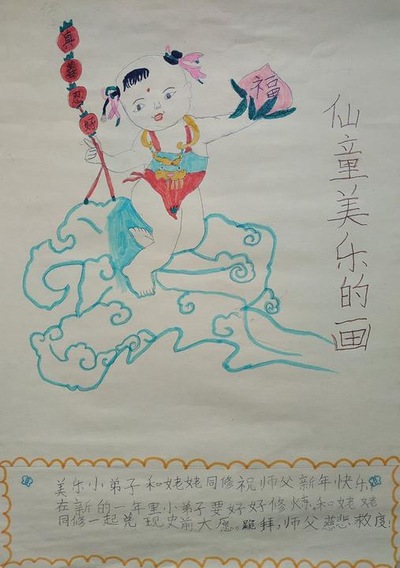 真善忍好
福
仙童美乐的画
美乐小弟子和姥姥同修祝师父新年快乐,
在新的一年里小弟子要好好修炼,和姥姥
同修一起兑现史前大愿。跪拜,师父慈悲救度!